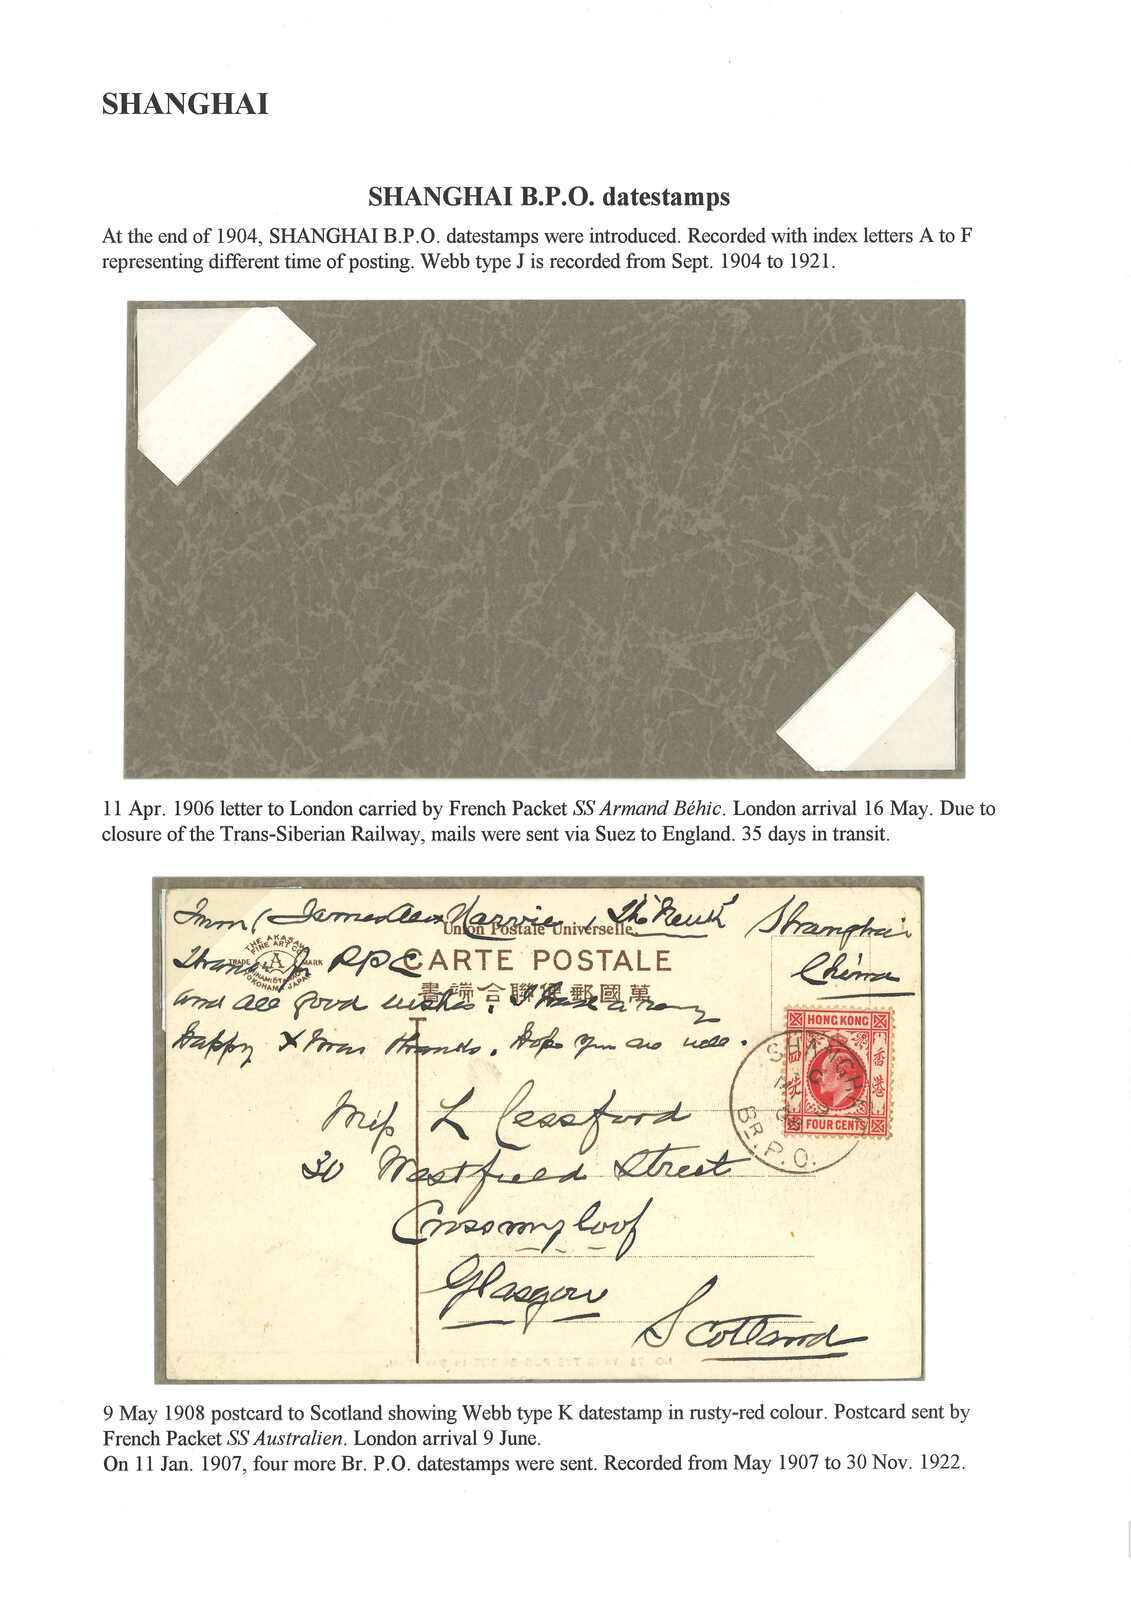 SHANGHAI
SHANGHAI B.P.O. datestamps
At the end of 1904, SHANGHAI B.P.O. datestamps were introduced. Recorded with index letters A to F
representing different time of posting. Webb type J is recorded from Sept. 1904 to 1921.
11 Apr. 1906 letter to London carried by French Packet SS Armand Béhic. London arrival 16 May. Due to
closure of the Trans-Siberian Railway, mails were sent via Suez to England. 35 days in transit.
From James
Shanghai
China
Union Postale Universelle.
THE AKASAKA FINE ART CO.
TRADE A MARK
YOKOHAMA JAPAN
Thanks for P.P.C
CARTE POSTALE
書端合聯便郵國萬
and all good wishes. I had a very
Happy Xmas thanks. Hope you are well.
HONG KONG
香港
FOUR CENTS
SHANGHAI
C
MY 9
08
BR. P. O.
Miss L Cessford
30 Westfield Street
Crossmyloof
Glasgow
Scotland
9 May 1908 postcard to Scotland showing Webb type K datestamp in rusty-red colour. Postcard sent by
French Packet SS Australien. London arrival 9 June.
On 11 Jan. 1907, four more Br. P.O. datestamps were sent. Recorded from May 1907 to 30 Nov. 1922.